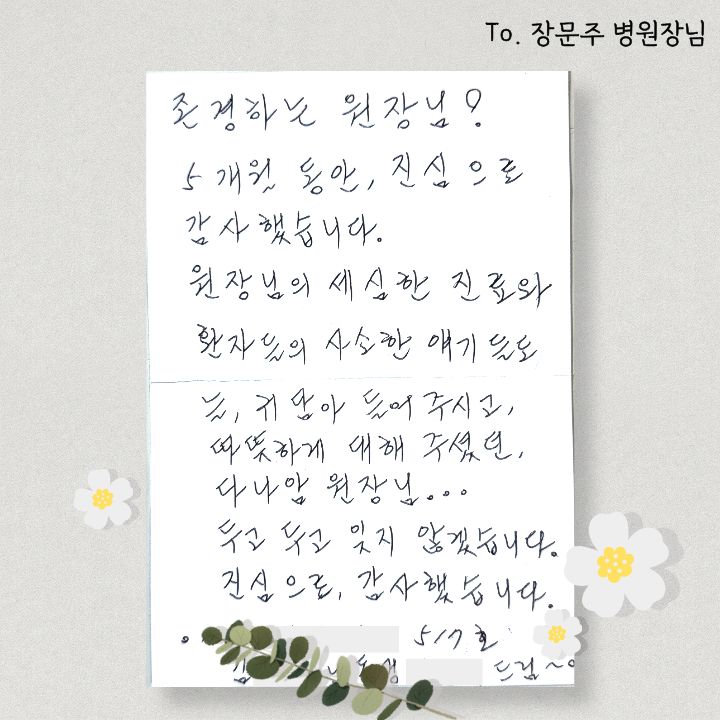 To. 장문주 병원장님
존경하는 원장님?
5개월 동안, 진심으로
감사했습니다.
원장님의 세심한 진료와
환자들의 사소한 얘기들도
늘, 귀담아 들어주시고,
따뜻하게 대해 주셨던,
다나암 원장님...
두고 두고 잊지 않겠습니다.
진심으로, 감사했습니다.
517호
드림~